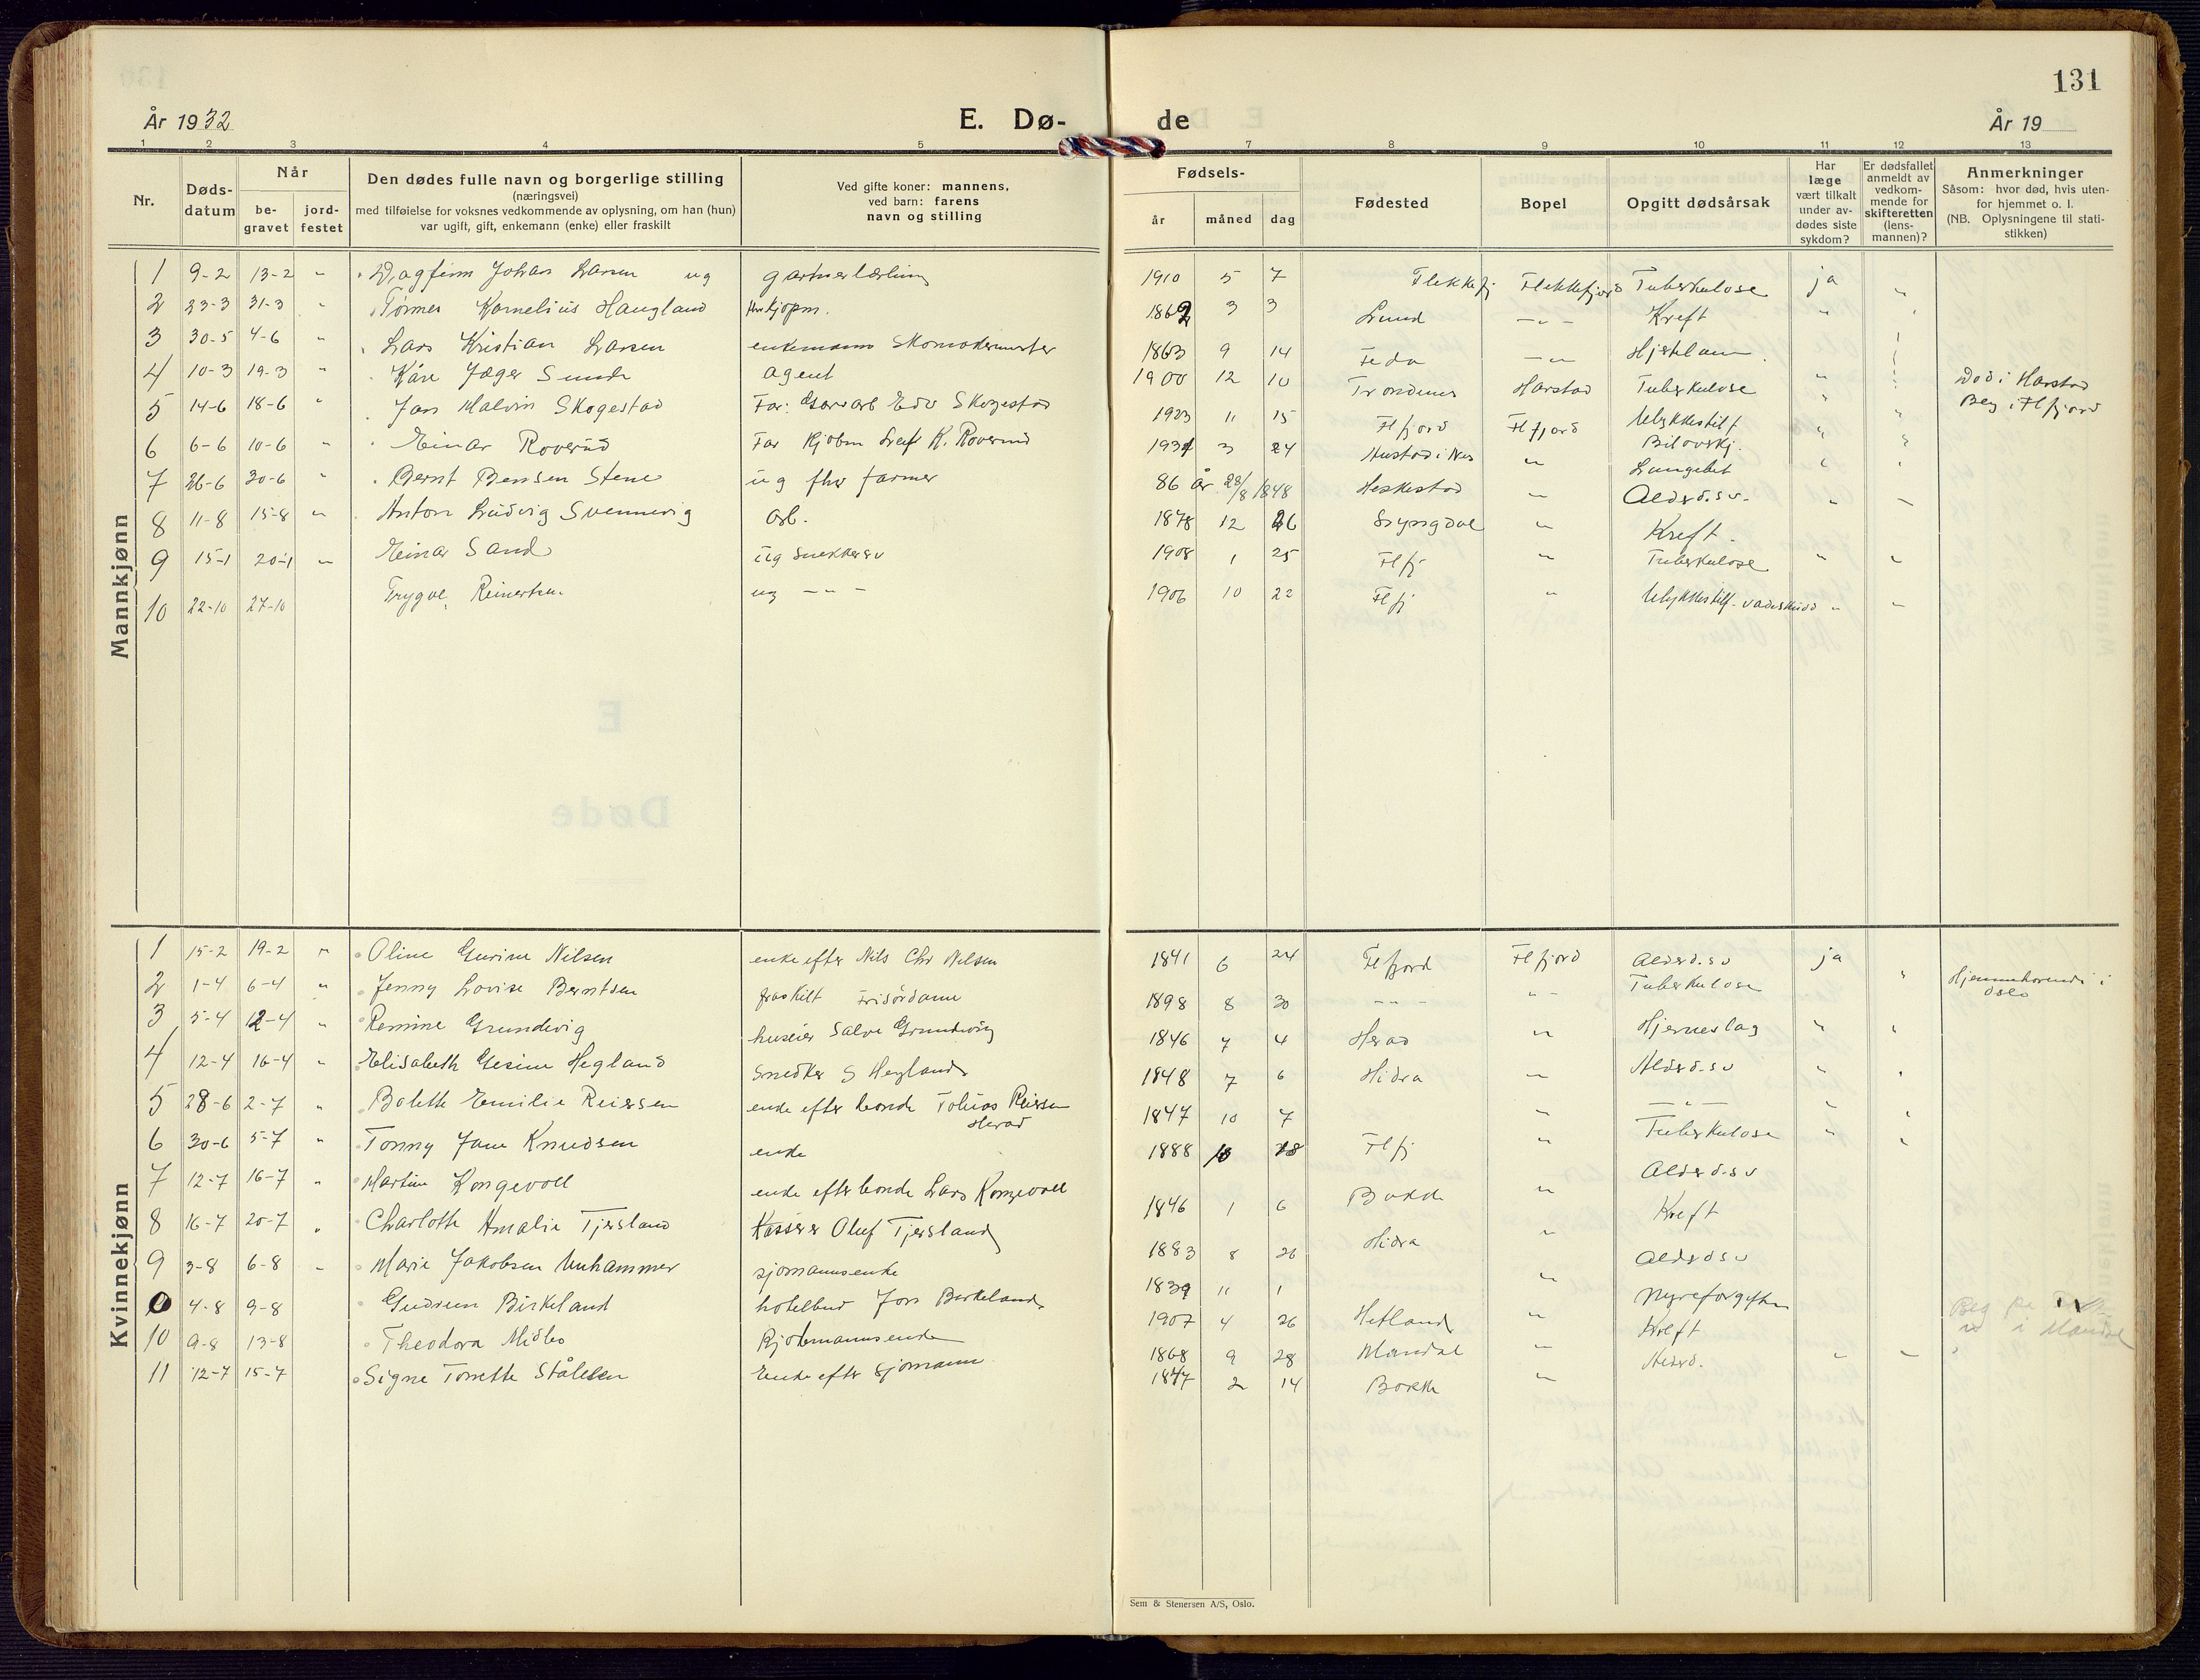 131
År 1932
E. Dø-
de
År 19
1 2 3 4 5 7 8 9 10 11 12 13
Nr.
Døds-
datum
Når
be-
gravet
jord-
festet
Den dødes fulle navn og borgerlige stilling
(næringsvei)
med tilføielse for voksnes vedkommende av oplysning, om han (hun)
var ugift, gift, enkemann (enke) eller fraskilt
Ved gifte koner: mannens,
ved barn: farens
navn og stilling
Fødsels-
år
måned
dag
Fødested
Bopel
Opgitt dødsårsak
Har
læge
vært tilkalt
under av-
dødes siste
sykdom?
Er dødsfallet
anmeldt av
vedkom-
mende for
skifteretten
(lens-
mannen)?
Anmerkninger
Såsom: hvor død, hvis uten-
for hjemmet o. l.
(NB. Oplysningene til stati-
stikken)
Mannkjønn
1 9-2 13-2 " Dagfinn Johan Larsen ug gartnerlærling 1910 5 7 Flekkefj Flekkefjord Tuberkulose ja "
2 23-3 31-3 " Tønnes Kornelius Haugland kjøpm. 1862 3 3 Lund - " - Kreft "
3 30-5 4-6 " Lars Kristian Larsen enkemann Skomakermester 1863 9 14 Feda - " -
4 10-3 19-3 " Kåre Jæger Sunde agent 1900 12 10 Trondenes Harstad Tuberkulose " Død i Harstad
Beg i Flfjord
5 14-6 18-6 " Jan Malvin Skogestad Far: Edv Skogestad 1923 11 15 Flfjord Flfjord Ulykkestilf
Bilovkj.
6 6-6 10-6 " Einar Roverud Far Kjøbm Leif K. Roverud 1931 3 24 i Nes " Lungebet
7 26-6 30-6 " Bernt Bensen Stene ug fhv farmer 86 år 28/8 1848 Heskestad " Alderd.sv.
8 11-8 15-8 " Anton Ludvig Svennevig arb. 1878 12 26 Lyngdal " Kreft.
9 15-1 20-1 " Einar Sand ug snekkersv 1908 1 25 Flfj " Tuberkulose " "
10 22-10 27-10 Trygve Reinertsen ug - " - 1906 10 22 Flfj " Ulykkestilf - vadeskudd " "
Kvinnekjønn
1 15-2 19-2 " Oline Gurine Nilsen enke efter Nils Chr Nilsen 1841 6 24 Flfjord Flfjord Alderd.sv ja
2 1-4 6-4 " Jenny Lovise Berntsen fraskilt Frisørdame 1898 8 30 - " - " Tuberkulose " Hjemmehørende i
Oslo
3 5-4 12-4 " Remine Grundevig huseier Salve Grundevig 1846 7 4 Herad " Hjerneslag " "
4 12-4 16-4 " Elisabeth Gesine Hegland Snedker S Hegland 1848 7 6 Hidra " Alderd.sv " "
5 28-6 2-7 " Bolette Emilie Reiersen enke efter bonde Tobias Reiersen
Herad 1847 10 7 " - " - " "
6 30-6 5-7 " Tonny Jane Knudsen enke 1888 10 28 Flfj " Tuberkulose " "
7 12-7 16-7 " Martine Kongevoll enke efter bonde Lars Kongevoll 1846 1 6 Bakke " Alderd.sv
8 16-7 20-7 " Charlotte Amalie Tjersland Kasserer Oluf Tjersland 1883 8 26 Hidra " Kreft
9 3-8 6-8 " Marie Jakobsen Unhammer sjømannsenke 1839 11 1 " Alderdsv
4-8 9-8 Gudrun Birkeland Jon Birkeland 1907 4 26 Hetland " Nyreforgiftn
10 9-8 13-8 Theodora Midbo Kjøbmannsenke 1868 9 28 Mandal " Kreft
11 12-7 15-7 Signe Tonette Stålesen Enke efter sjømann 1847 2 14 Bakke " Alderd. " "
i Mandal
Sem & Stenersen A/S, Oslo.